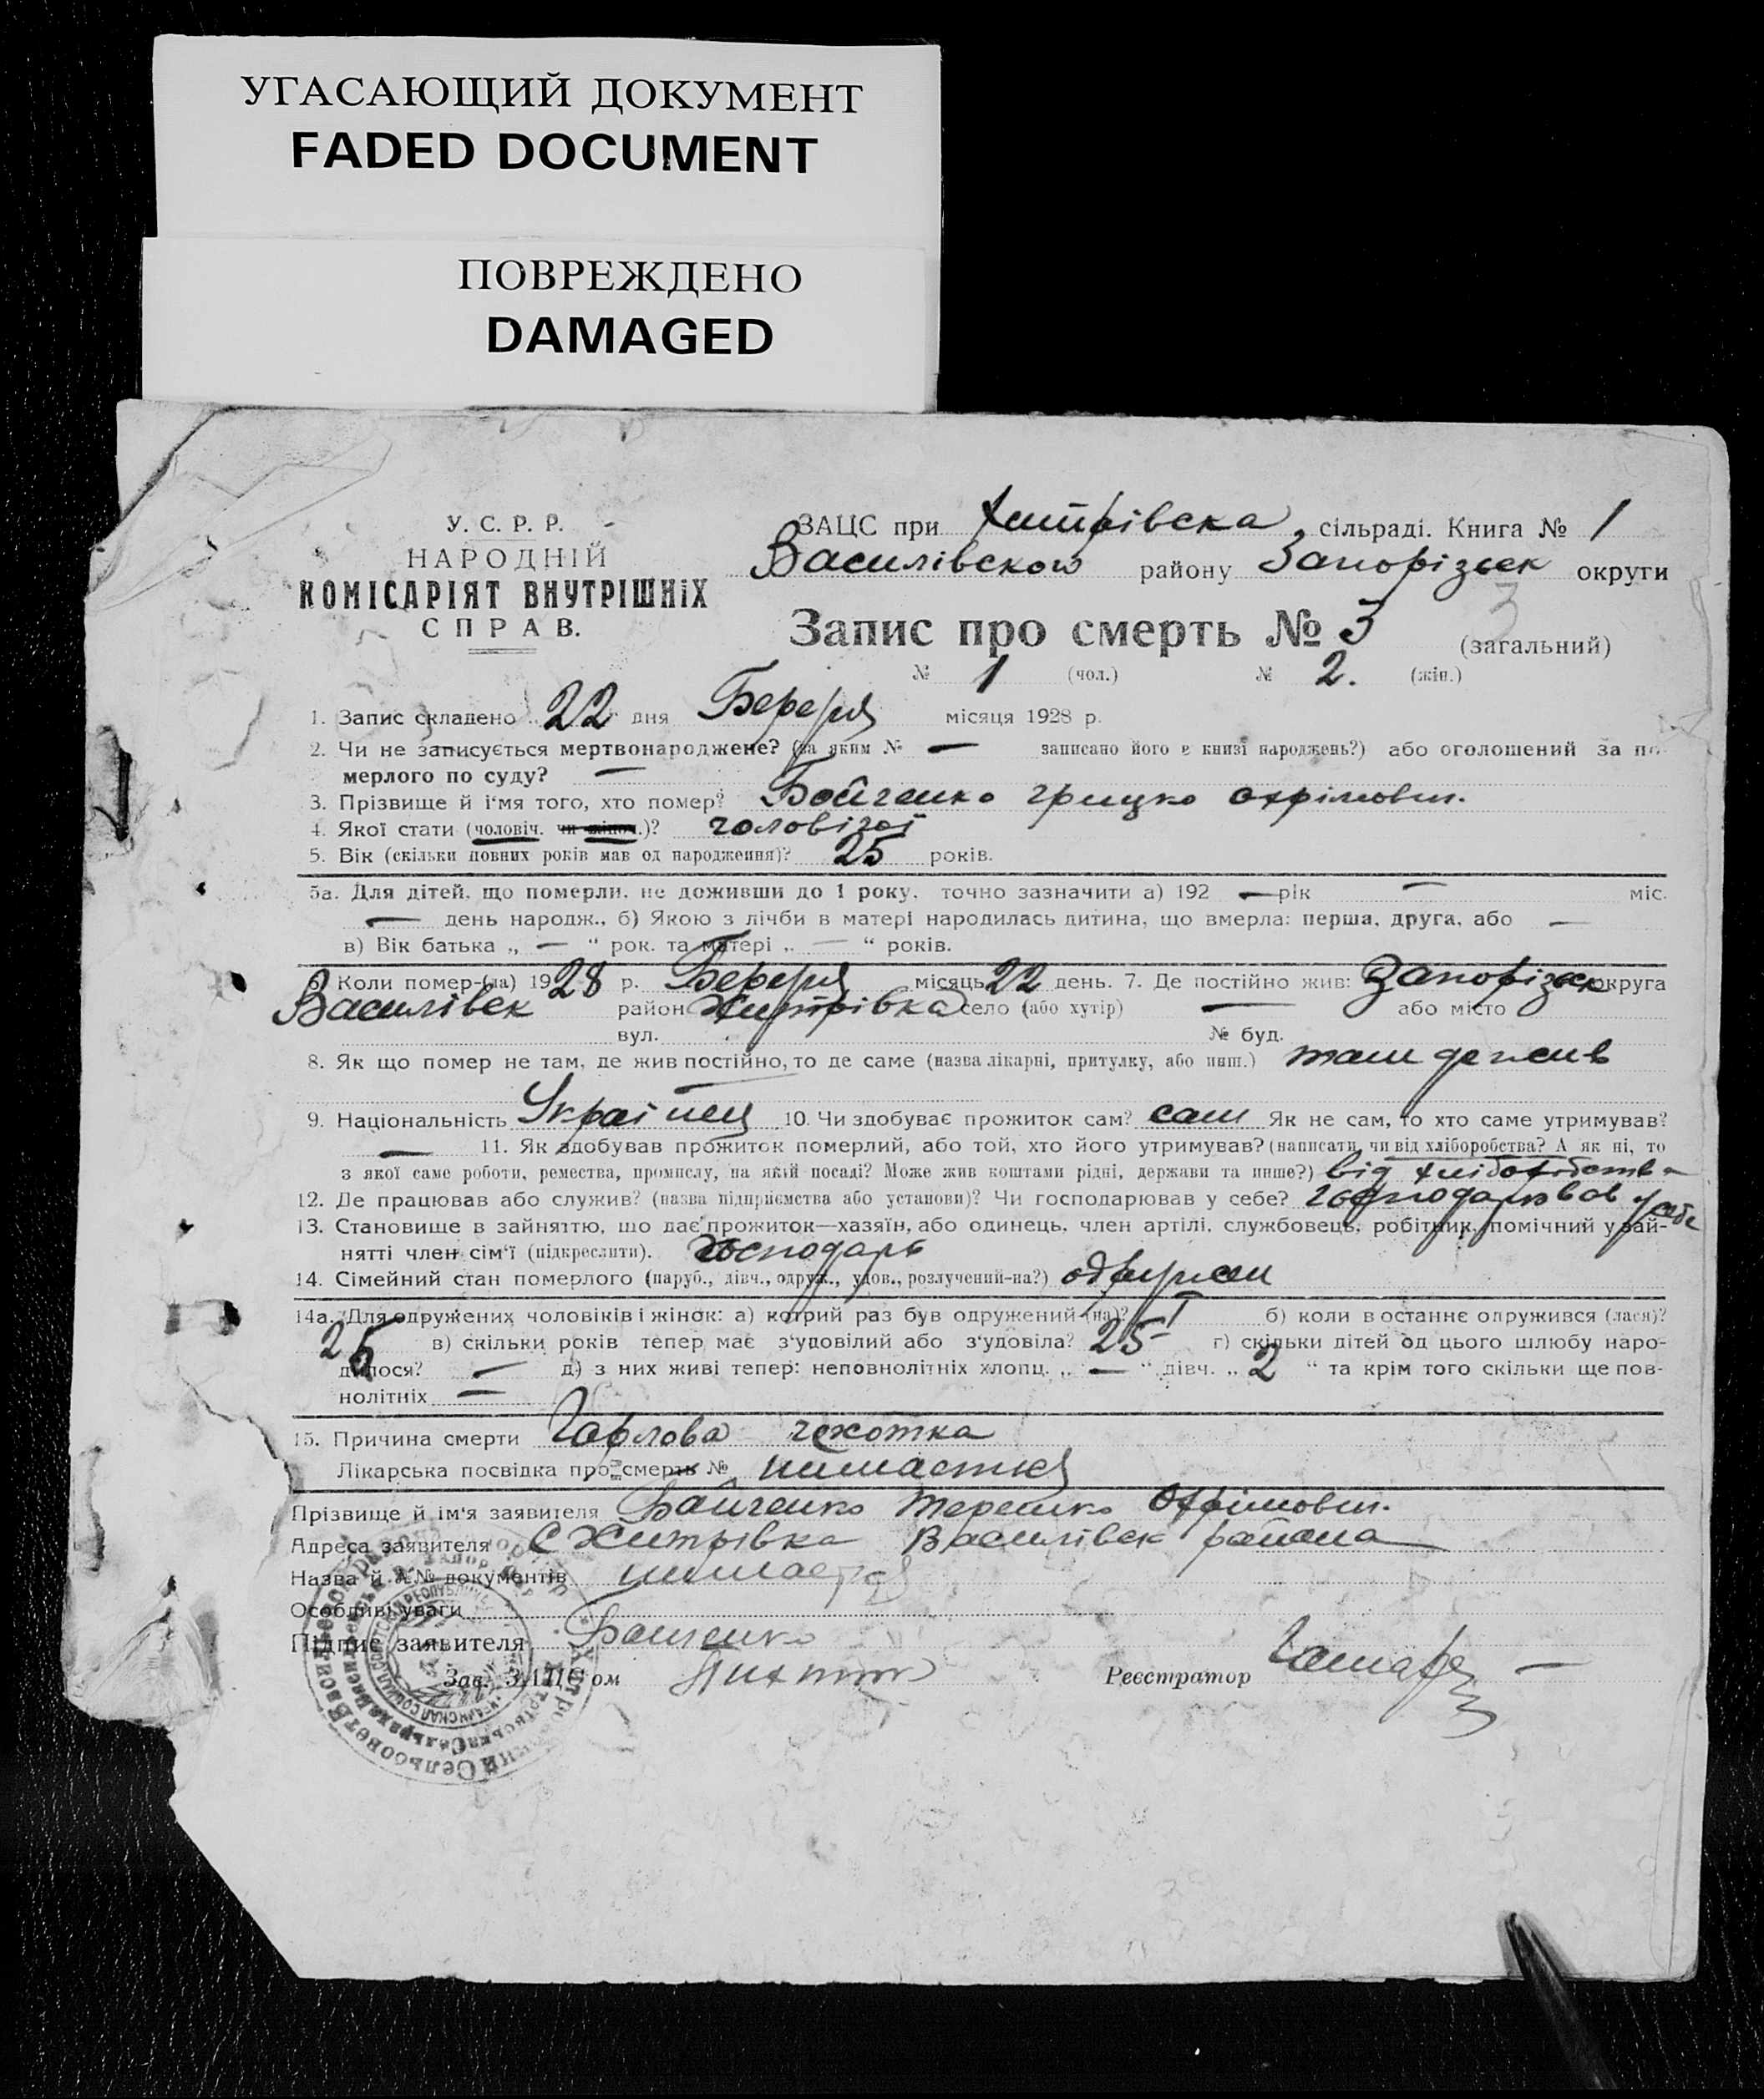 УГАСАЮЩИЙ ДОКУМЕНТ
FADED DOCUMENT
ПОВРЕЖДЕНО
DAMAGED
У. С. Р. Р.
НАРОДНІЙ
КОМІСАРІЯТ ВНУТРІШНІХ
СПРАВ.
ЗАЦС при Хитрівска сільраді. Книга № 1
Василівскої району Запорізьк округи
Запис про смерть № 3 3 (загальний)
№ 1 (чол.) № 2. (жін.)
1. Запис складено 22 дня Береря місяця 1928 р.
2. Чи не записується мертвонароджене? (за яким № — записано його в книзі народжень?) або оголошений за по-
мерлого по суду? —
3. Прізвище й і'мя того, хто помер? Бойченко Грицко Охрімович.
4. Якої статі (чоловіч. чи жіноч.)? чоловічої
5. Вік (скільки повних років мав од народження)? 25 років.
5а. Для дітей, що померли, не доживши до 1 року, точно зазначити а) 192 — рік — міс.
— день народж., б) Якою з лічби в матері народилась дитина, що вмерла: перша, друга, або —
в) Вік батька „ — “ рок. та матері „ — “ років.
6. Коли помер-(ла) 1928 р. Береря місяць 22 день. 7. Де постійно жив: Запорізьк округа
Василівск район Хитрівка село (або хутір) — або місто
вул. № буд.
8. Як що помер не там, де жив постійно, то де саме (назва лікарні, притулку, або инш.) там де жив
—
9. Національність Українец 10. Чи здобуває прожиток сам? сам Як не сам, то хто саме утримував?
— 11. Як здобував прожиток померлий, або той, хто його утримував? (написати, чи від хліборобства? А як ні, то
з якої саме роботи, ремества, промислу, на якій посаді? Може жив коштами рідні, держави та инше?) від хліборобства
12. Де працював або служив? (назва підприємства або установи)? Чи господарював у себе? господарював у себе
13. Становище в зайнятто, що дає прожиток—хазяїн, або одинець, член артілі, службовець, робітник, помічний у зай-
нятті член сім'ї (підкреслити). господарь
14. Сімейний стан померлого (паруб., дівч., одруж., удов., розлучений-на?) одружен
14а. Для одружених чоловіків і жінок: а) котрий раз був одружений-(на)? I б) коли в останнє одружився (лася)?
25 в) скільки років тепер має з'удовілий або з'удовіла? 25 г) скільки дітей од цього шлюбу наро-
дилося? — д) з них живі тепер: неповнолітніх хлопц. „ — “ дівч. „ 2 “ та крім того скільки ще пов-
нолітніх —
15. Причина смерти Горлова чехотка
Лікарська посвідка про смерть №
Прізвище й ім'я заявителя Бойченко Терешко Охрімович.
Адреса заявителя С Хитрівка Василівск района
Назва й №№ документів
Особливі уваги
Підпис заявителя Бойченко
Зав. ЗАЦС'ом Реєстратор